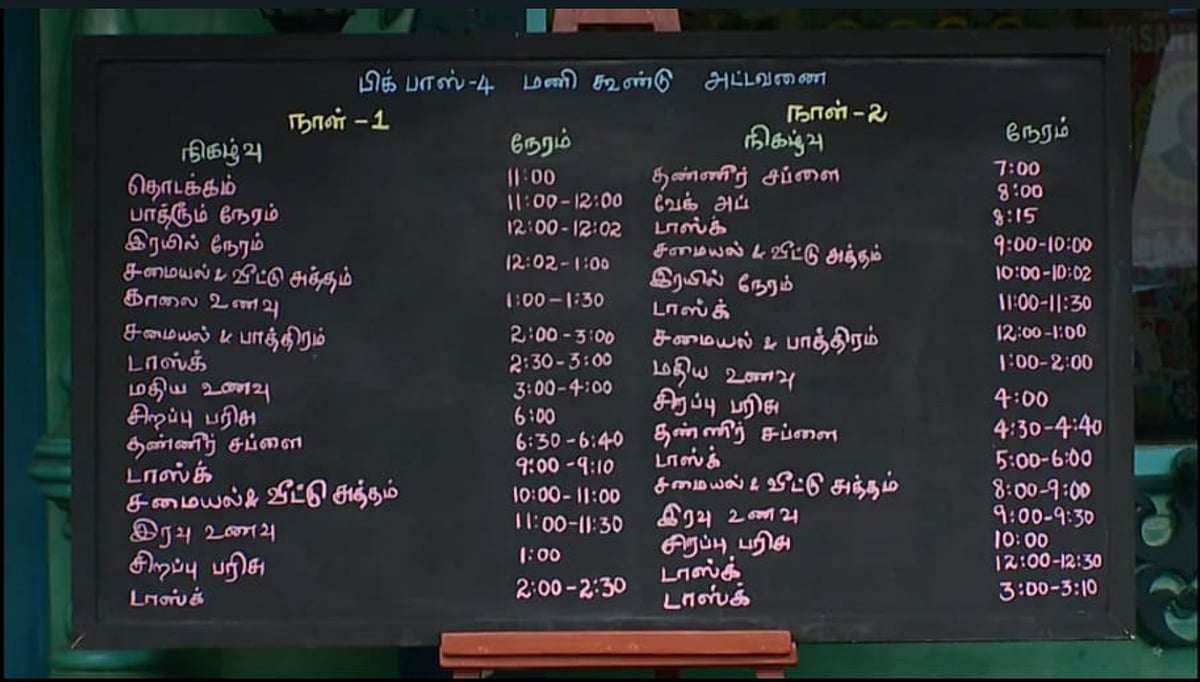 பிக் பாஸ்-4 மணி கூண்டு அட்டவணை
நாள் -1
நிகழ்வு நேரம்
தொடக்கம் 11:00
பாத்ரூம் நேரம் 11:00-12:00
இரயில் நேரம் 12:00-12:02
சமையல் & வீட்டு சுத்தம் 12:02-1:00
காலை உணவு 1:00-1:30
சமையல் & பாத்திரம் 2:00-3:00
டாஸ்க் 2:30-3:00
மதிய உணவு 3:00-4:00
சிறப்பு பரிசு 6:00
தண்ணீர் சப்ளை 6:30-6:40
டாஸ்க் 9:00-9:10
சமையல் & வீட்டு சுத்தம் 10:00-11:00
இரவு உணவு 11:00-11:30
சிறப்பு பரிசு 1:00
டாஸ்க் 2:00-2:30
நாள்-2
நிகழ்வு நேரம்
தண்ணீர் சப்ளை 7:00
வேக் அப் 8:00
டாஸ்க் 8:15
சமையல் & வீட்டு சுத்தம் 9:00-10:00
இரயில் நேரம் 10:00-10:02
டாஸ்க் 11:00-11:30
சமையல் & பாத்திரம் 12:00-1:00
மதிய உணவு 1:00-2:00
சிறப்பு பரிசு 4:00
தண்ணீர் சப்ளை 4:30-4:40
டாஸ்க் 5:00-6:00
சமையல் & வீட்டு சுத்தம் 8:00-9:00
இரவு உணவு 9:00-9:30
சிறப்பு பரிசு 10:00
டாஸ்க் 12:00-12:30
டாஸ்க் 3:00-3:10